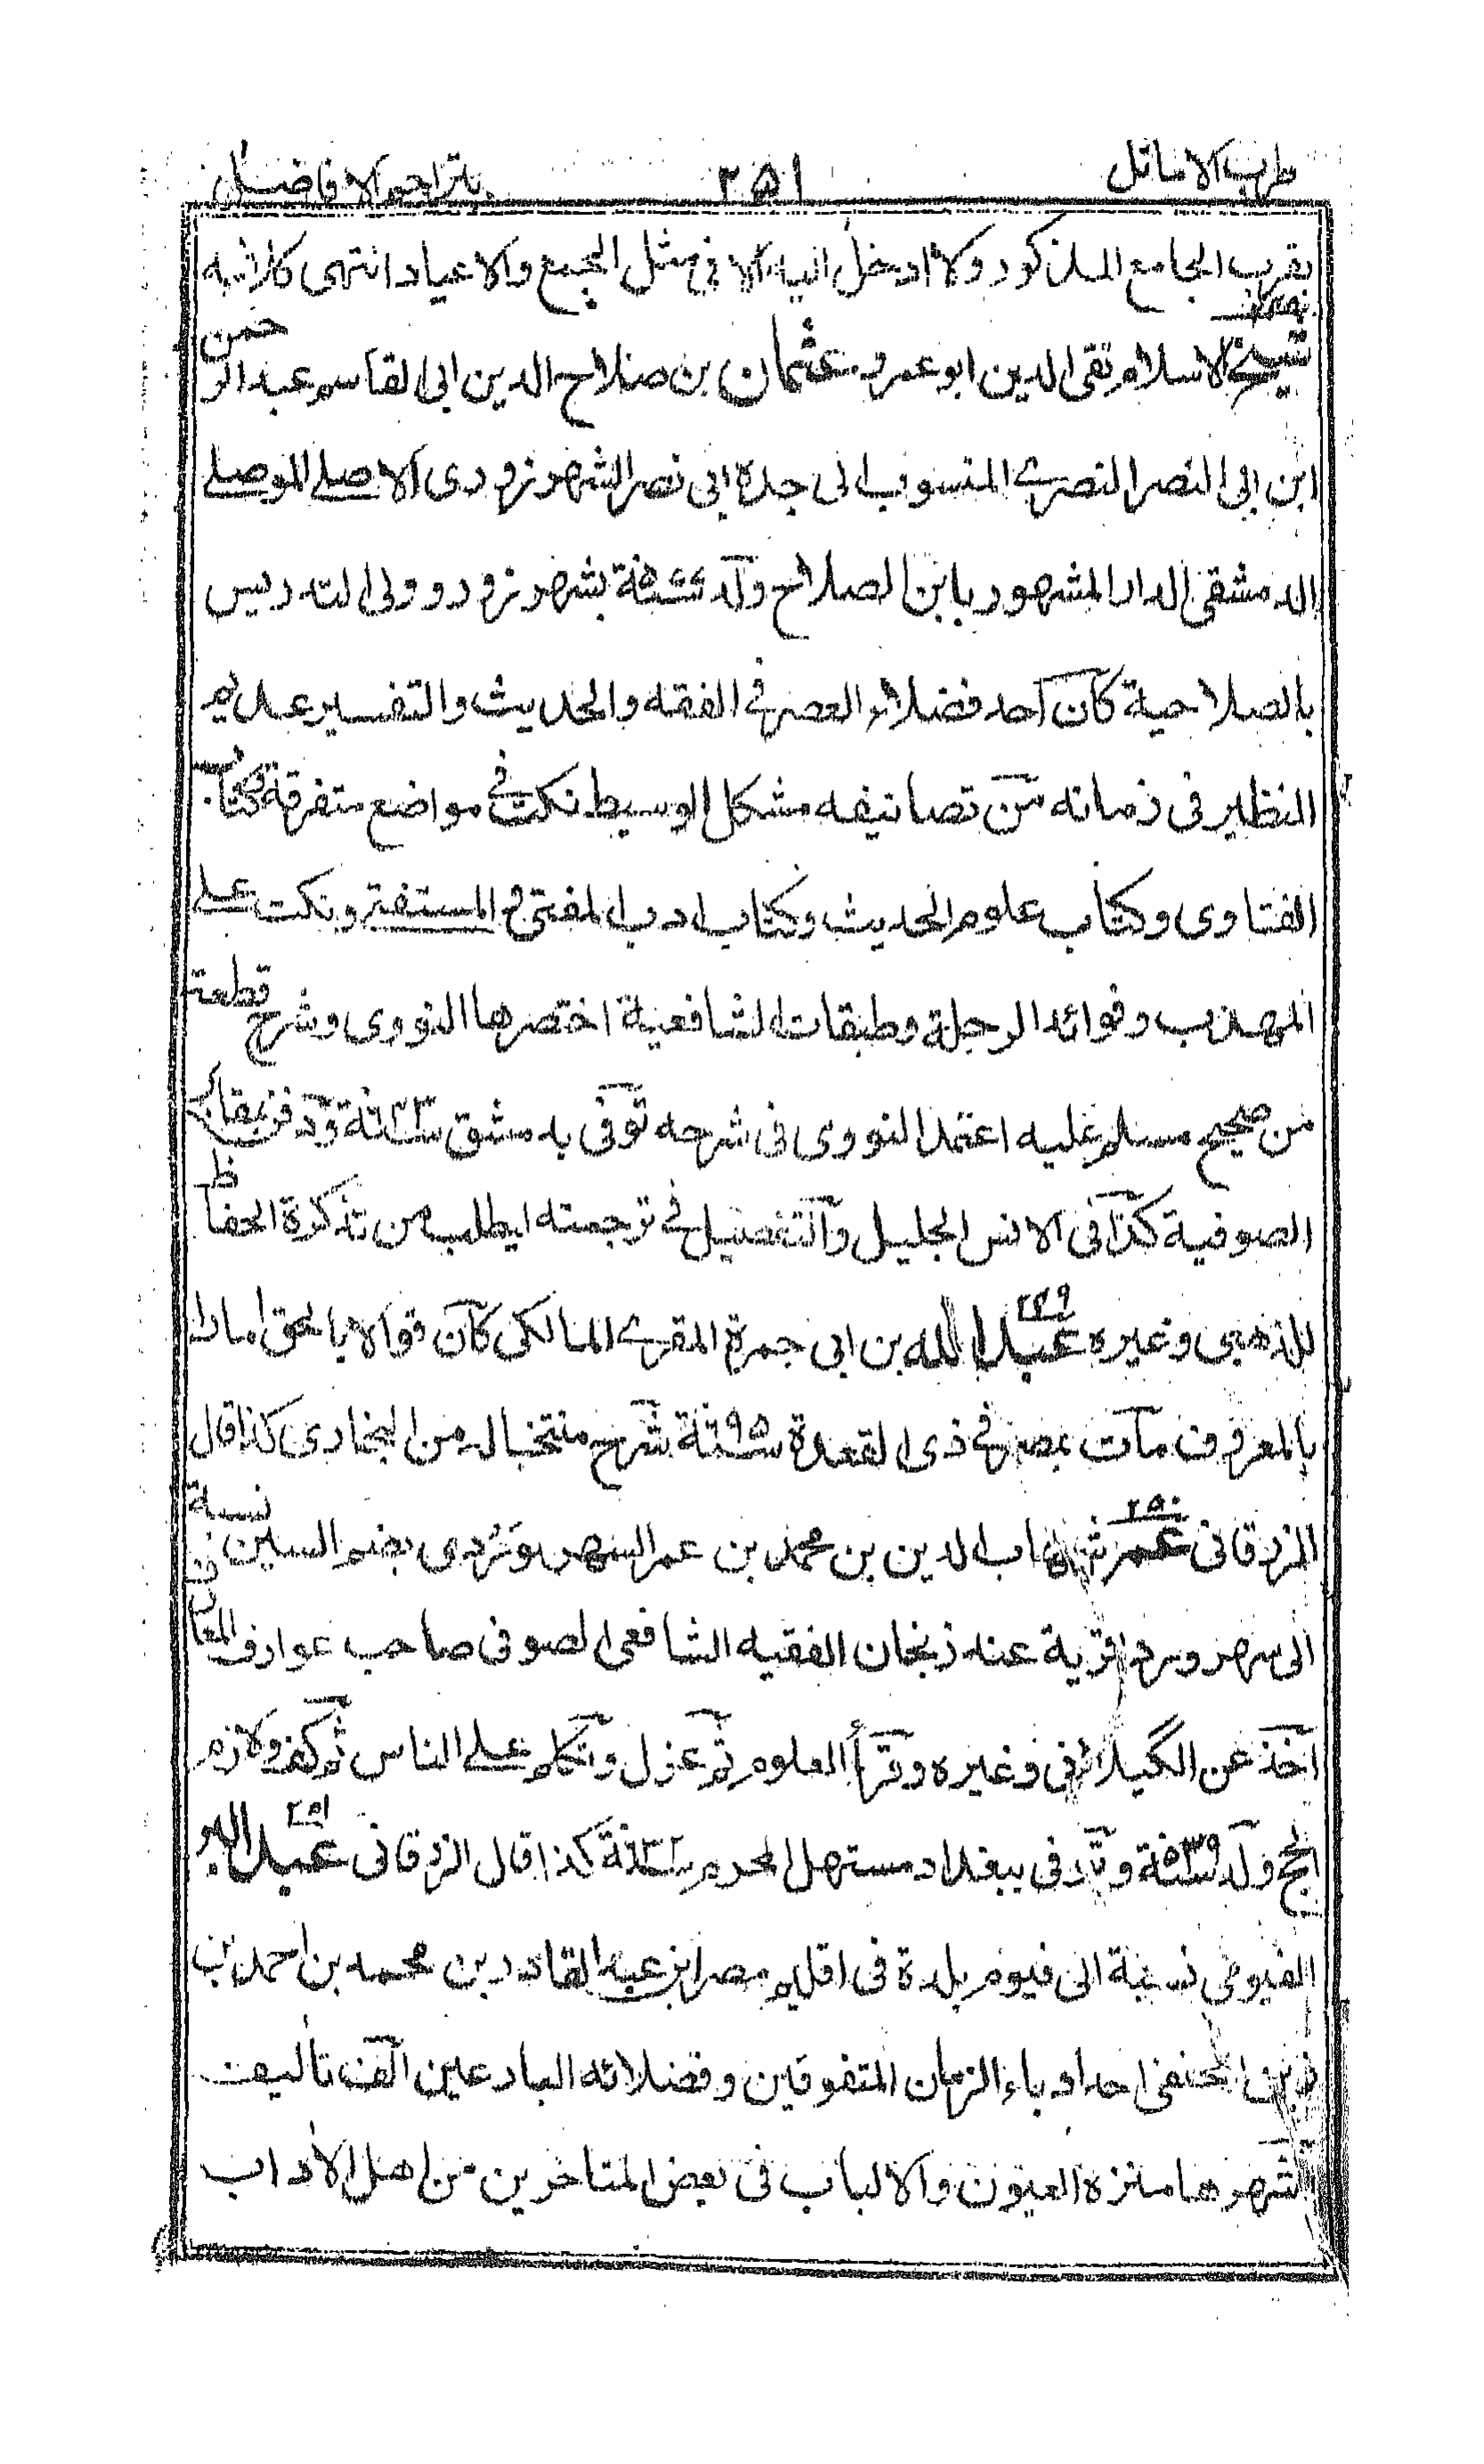 طرب الاماثل ٢٥١ بتراجم الافاضل
بقرب الجامع المذكور ولا ادخل اليه الا فى مثل الجمع والاعياد انتهى كلامه
شيخ الاسلام تقى الدين ابو عمرو عثمان بن صلاح الدين ابى القاسم عبد الرحمن
ابن ابى النصر النصرے المنسوب الى جده ابى نصر الشهرزورى الاصلے الموصلے
الدمشقى الدار المشهور بابن الصلاح ولد سنة ٥٧٧ بشهرزور وولى التدريس
بالصلاحية كان احد فضلاء العصر فے الفقه والحديث والتفسير عديم
النظير فى زمانه من تصانيفه مشكل الوسيط نكت فے مواضع متفرقة وكتاب
الفتاوى وكتاب علوم الحديث وكتاب ادب المفتى و المستفتے ونكت علے
المهذب وفوائد الرحلة وطبقات الشافعية اختصرها النووى وشرح قطعة
من صحيح مسلم عليه اعتمد النووى فى شرحه توفى بدمشق سنة ٦٤٣ ودفن بمقابر
الصوفية كذا فى الانس الجليل والتفصيل فے ترجمته ايطلب من تذكرة الحفاظ
للذهبى وغيره ٢٤٩ عبد الله بن ابى جمرة المقرے المالكى كان قوالا بالحق امارا
بالمعروف مات بمصر فے ذى القعدة سنة ٦٩٥ شرح منتخبا له من البخارى كذا قال
الزرقانى ٢٥٠ عمر شهاب الدين بن محمد بن عمر السهروردى بضم السين نسبة
الى سهرورد قرية عند زنجان الفقيه الشافعى الصوفى صاحب عوارف المعارف
اخذ عن الگيلانى وغيره وقرأ العلوم ثم عزل وتكلم علے الناس ثم كف ولازم
الحج ولد سنة ٥٣٩ وتوفى ببغداد مستهل المحرم سنة ٦٣٢ كذا قال الزرقانى ٢٥١ عبد البر
الفيومى نسبة الى فيوم بلدة فى اقليم مصر ابن عبد القادر بن محمد بن احمد بن
زين الحنفى احد ادباء الزمان المتفوقين وفضلائه البارعين الف تاليف
اشهرها منزه العيون والالباب فى بعض المتاخرين من اهل الاداب